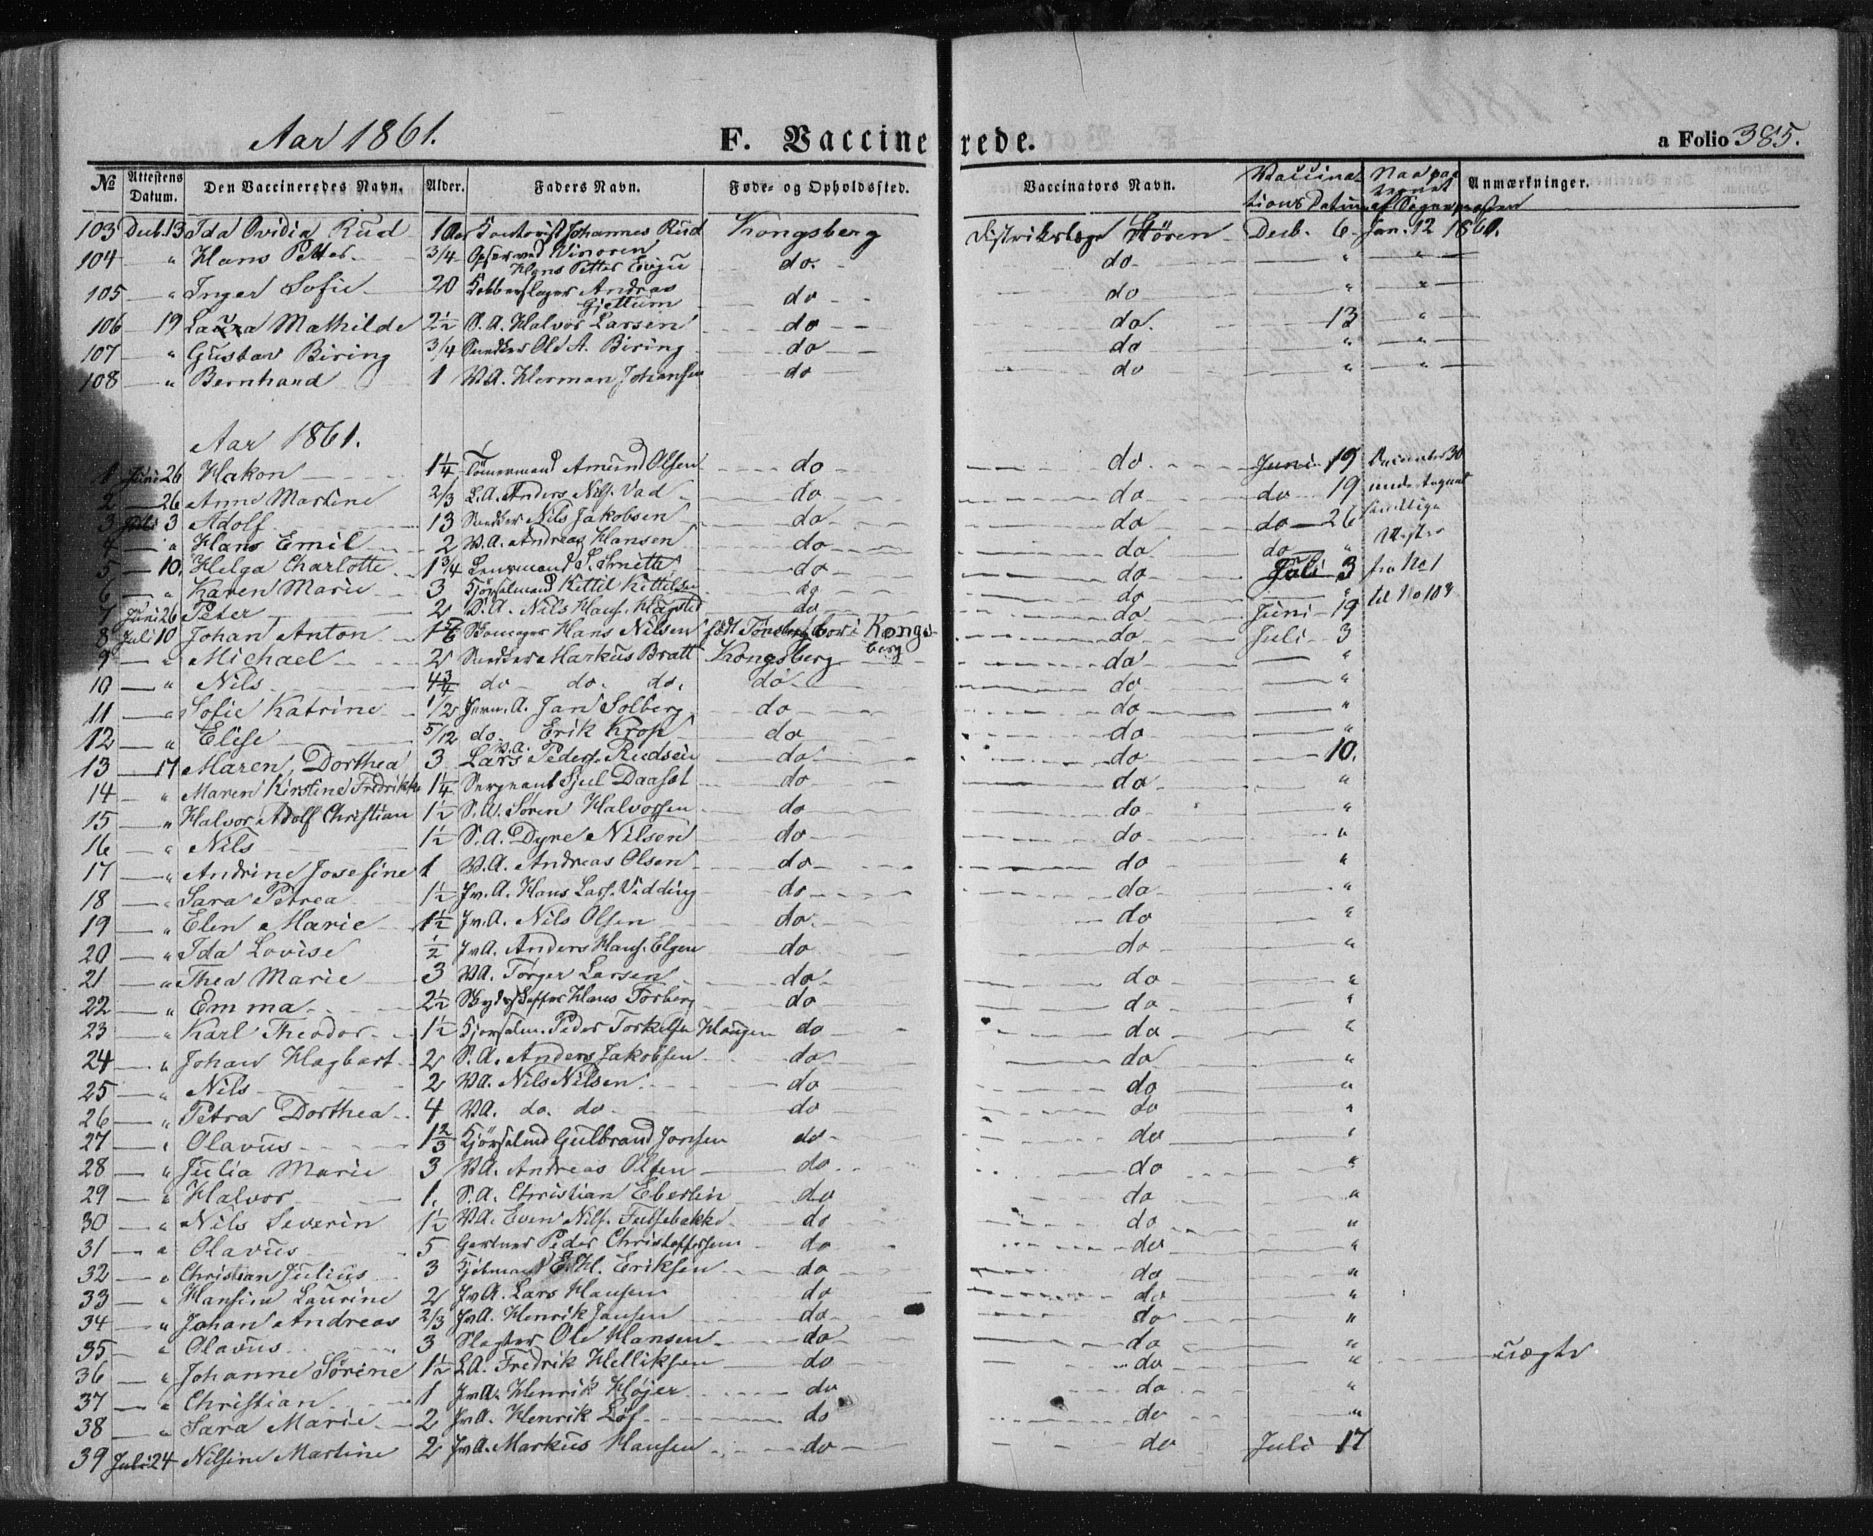 Aar 1861. F. Vaccinerede. a Folio 385.
No Attestens Datum. Den Vaccineredes Navn. Alder. Faders Navn. Føde- og Opholdssted. Vaccinators Navn. Vaccinationsdatum Anmærkninger.
103 Decb. 13 Ida Ovidia Rud 1 Aar Kontorist Johannes Rud Kongsberg Distriktslæge Støren Decb. 6 Jan. 12 1861.
104 " Hans Petter 3/4 Opsynsmd Vinoren Hans Petter Evju do. do " "
105 " Inger Sofie 20 Kobberslager Andreas Gjettum do do " "
106 19 Laura Mathilde 2½ S.A. Halvor Larsen do do. 13 "
107 " Gustav Biring 3/4 Snedker Ole A. Biring do do " "
108 " Bernhard 1 V.A. Herman Johansen do do " "
Aar 1861.
1 Juni 26 Hakon 1¼ Tømermand Amund Olsen do do Juni 19 December 30
2 26 Anne Martine 2/3 L.A. Anders Nils. Vad do do do 19 undertegnet
3 Juli 3 Adolf 13 Snedker Nils Jakobsen do do do 26 samtlige
4 " Hans Emil 2 V.A. Andreas Hansen do do do " Attester
5 10. Helga Charlotte 1¾ Lensmand S. Smith do do Juli 3 fra No 1
6 " Karen Marie 3 Kjørselmand Kittil Kittilsen do do "
7 Juni 26 Peter 2 S.A. Nils Hans. Hagsted do do Juni 19 til No 103
8 Juli 10 Johan Anton 1 5/6 Skomager Hans Nilsen født Tønsberg bor i Kongsberg do Juli 3
9 " Michael 2 Snedker Markus Bratt Kongsberg do "
10 " Nils 4¾ do do. do. do do "
11 " Sofie Katrine 1/2 Jernv.A. Jan Solberg do do "
12 " Elise 5/12 do Erik Krop do do "
13 17 Maren Dorthea 3 V.A. Lars Peders. Rudsen do do 10.
14 " Maren Kirstine Fredrikke 1¼ Sergeant Sjul Daaset do do "
15 " Halvor Adolf Christian 1½ S.A. Søren Halvorsen do do "
16 " Nils 1½ S.A. Dyre Nilsen do do "
17 " Andrine Josefine 1 V.A. Andreas Olsen do do "
18 " Sara Petrea 1½ Jv.A. Hans Lars. Vidding do do "
19 " Elen Marie 1½ Jv.A. Nils Olsen do do "
20 " Ida Lovise ½ Jv.A. Anders Hans. Elgen do do "
21 " Thea Marie 3 V.A. Torger Larsen do do "
22 " Emma 2½ Skydsskaffer Hans Torberg do do "
23 " Karl Theodor 1½ Kjørselm. Peder Torkelsen Haugen do do "
24 " Johan Hagbart 2 S.A. Anders Jakobsen do do "
25 " Nils 2 V.A. Nils Nilsen do do "
26 " Petra Dorthea 4 V.A. do. do do do "
27 " Olavus 1⅔ Kjørselmd Gulbrand Jonsen do do "
28 " Julia Marie 3 V.A. Andreas Olsen do do "
29 " Halvor 1. S.A. Christian Eberlin do do "
30 " Nils Severin 1½ V.A. Even Nils. Fulsebakke do do "
31 " Olavus 5 Gartner Peder Christoffersen do do "
32 " Christian Julius 3 Kjøbmand E.H. Eriksen do do "
33 " Hansine Laurine 2 Jv.A. Lars Hansen do do "
34 " Johan Andreas 2/3 Jv.A. Henrik Jansen do do "
35 " Olavus 3 Slagter Ole Hansen do do "
36 " Johanne Sørine 1½ L.A. Fredrik Helliksen do do " uægte
37 " Christian 1 Jv.A. Henrik Højer do do "
38 " Sara Marie 2 Jv.A. Henrik Løf do do "
39 Juli 24 Nilsine Martine 2 Jv.A. Markus Hansen do do Juli 17